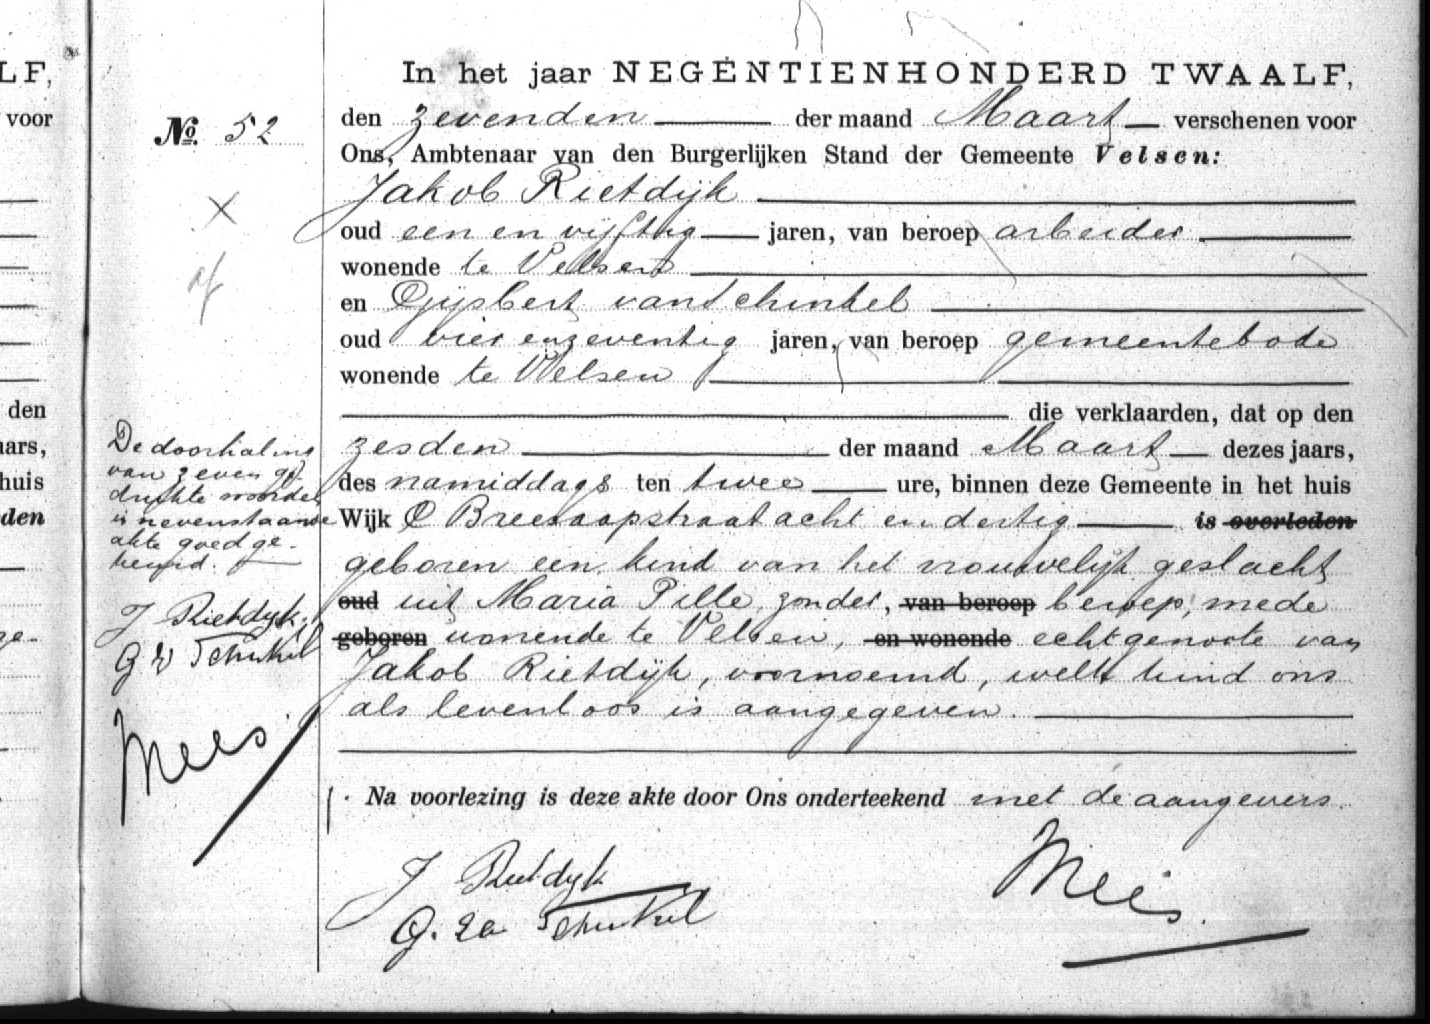 LF,
voor
den
aars,
huis
den
ge-
No. 52
In het jaar NEGENTIENHONDERD TWAALF,
den zevenden der maand Maart verschenen voor
Ons, Ambtenaar van den Burgerlijken Stand der Gemeente Velsen:
Jakob Rietdijk
oud een en vijftig jaren, van beroep arbeider
wonende te Velsen
en Gijsbert van 't Schinkel
oud vier en zeventig jaren, van beroep gemeentebode
wonende te Velsen
die verklaarden, dat op den
zesden der maand Maart dezes jaars,
des namiddags ten twee ure, binnen deze Gemeente in het huis
Wijk C Breesaapstraat acht en dertig is overleden
geboren een kind van het vrouwelijk geslacht
oud uit Maria Pille, zonder, van beroep beroep, mede
geboren wonende te Velsen, en wonende echtgenoote van
Jakob Rietdijk, voornoemd, welk kind ons
als levenloos is aangegeven.
Na voorlezing is deze akte door Ons onderteekend met de aangevers.
J Rietdyk
G. Schinkel
Mees
De doorhaling
van zeven ge
drukte woorden
in nevenstaande
akte goedge-
keurd.
J Rietdyk
G Schinkel
Mees